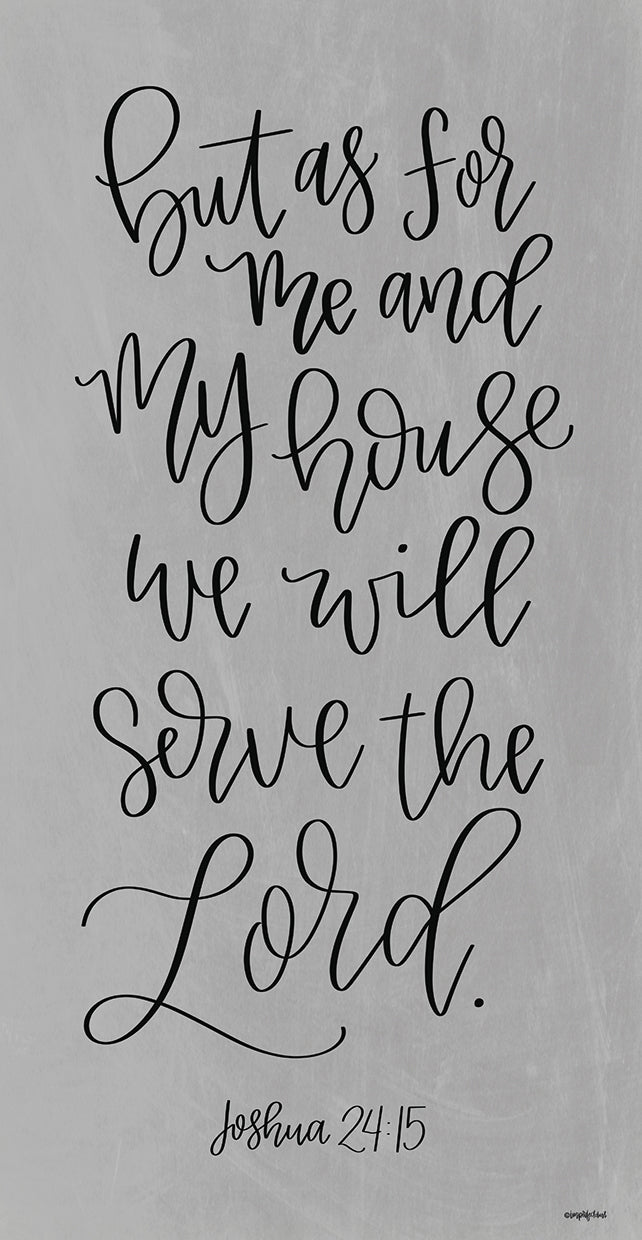 but as for
me and
my house
we will
serve the
Lord.
Joshua 24:15